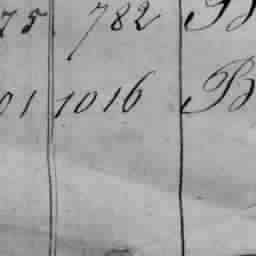 75 782 B
01 1016 B